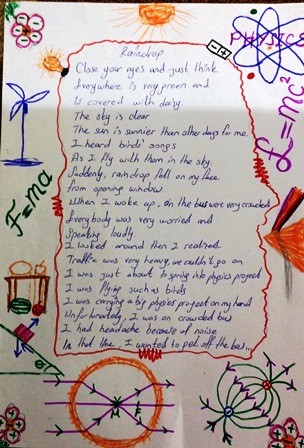 PHYSICS
Raindrop
Close your eyes and just think
Everywhere is very green and
is covered with daisy
The sky is clear
The sun is sunnier than other days for me.
I heard birds' songs
As I fly with them in the sky.
Suddenly, raindrop fell on my face
from opening window
When I woke up, in the bus were very crowded
Everybody was very worried and
speaking loudly
I looked around then I realized
Traffic was very heavy, we couldn't go on
I was just about to bring into physics project
I was flying such as birds
I was carrying a big physics project on my hand
Unfortunately, I was on crowded bus
I had headache because of noise
In that time, I wanted to get off the bus...
E=mc²
F=ma